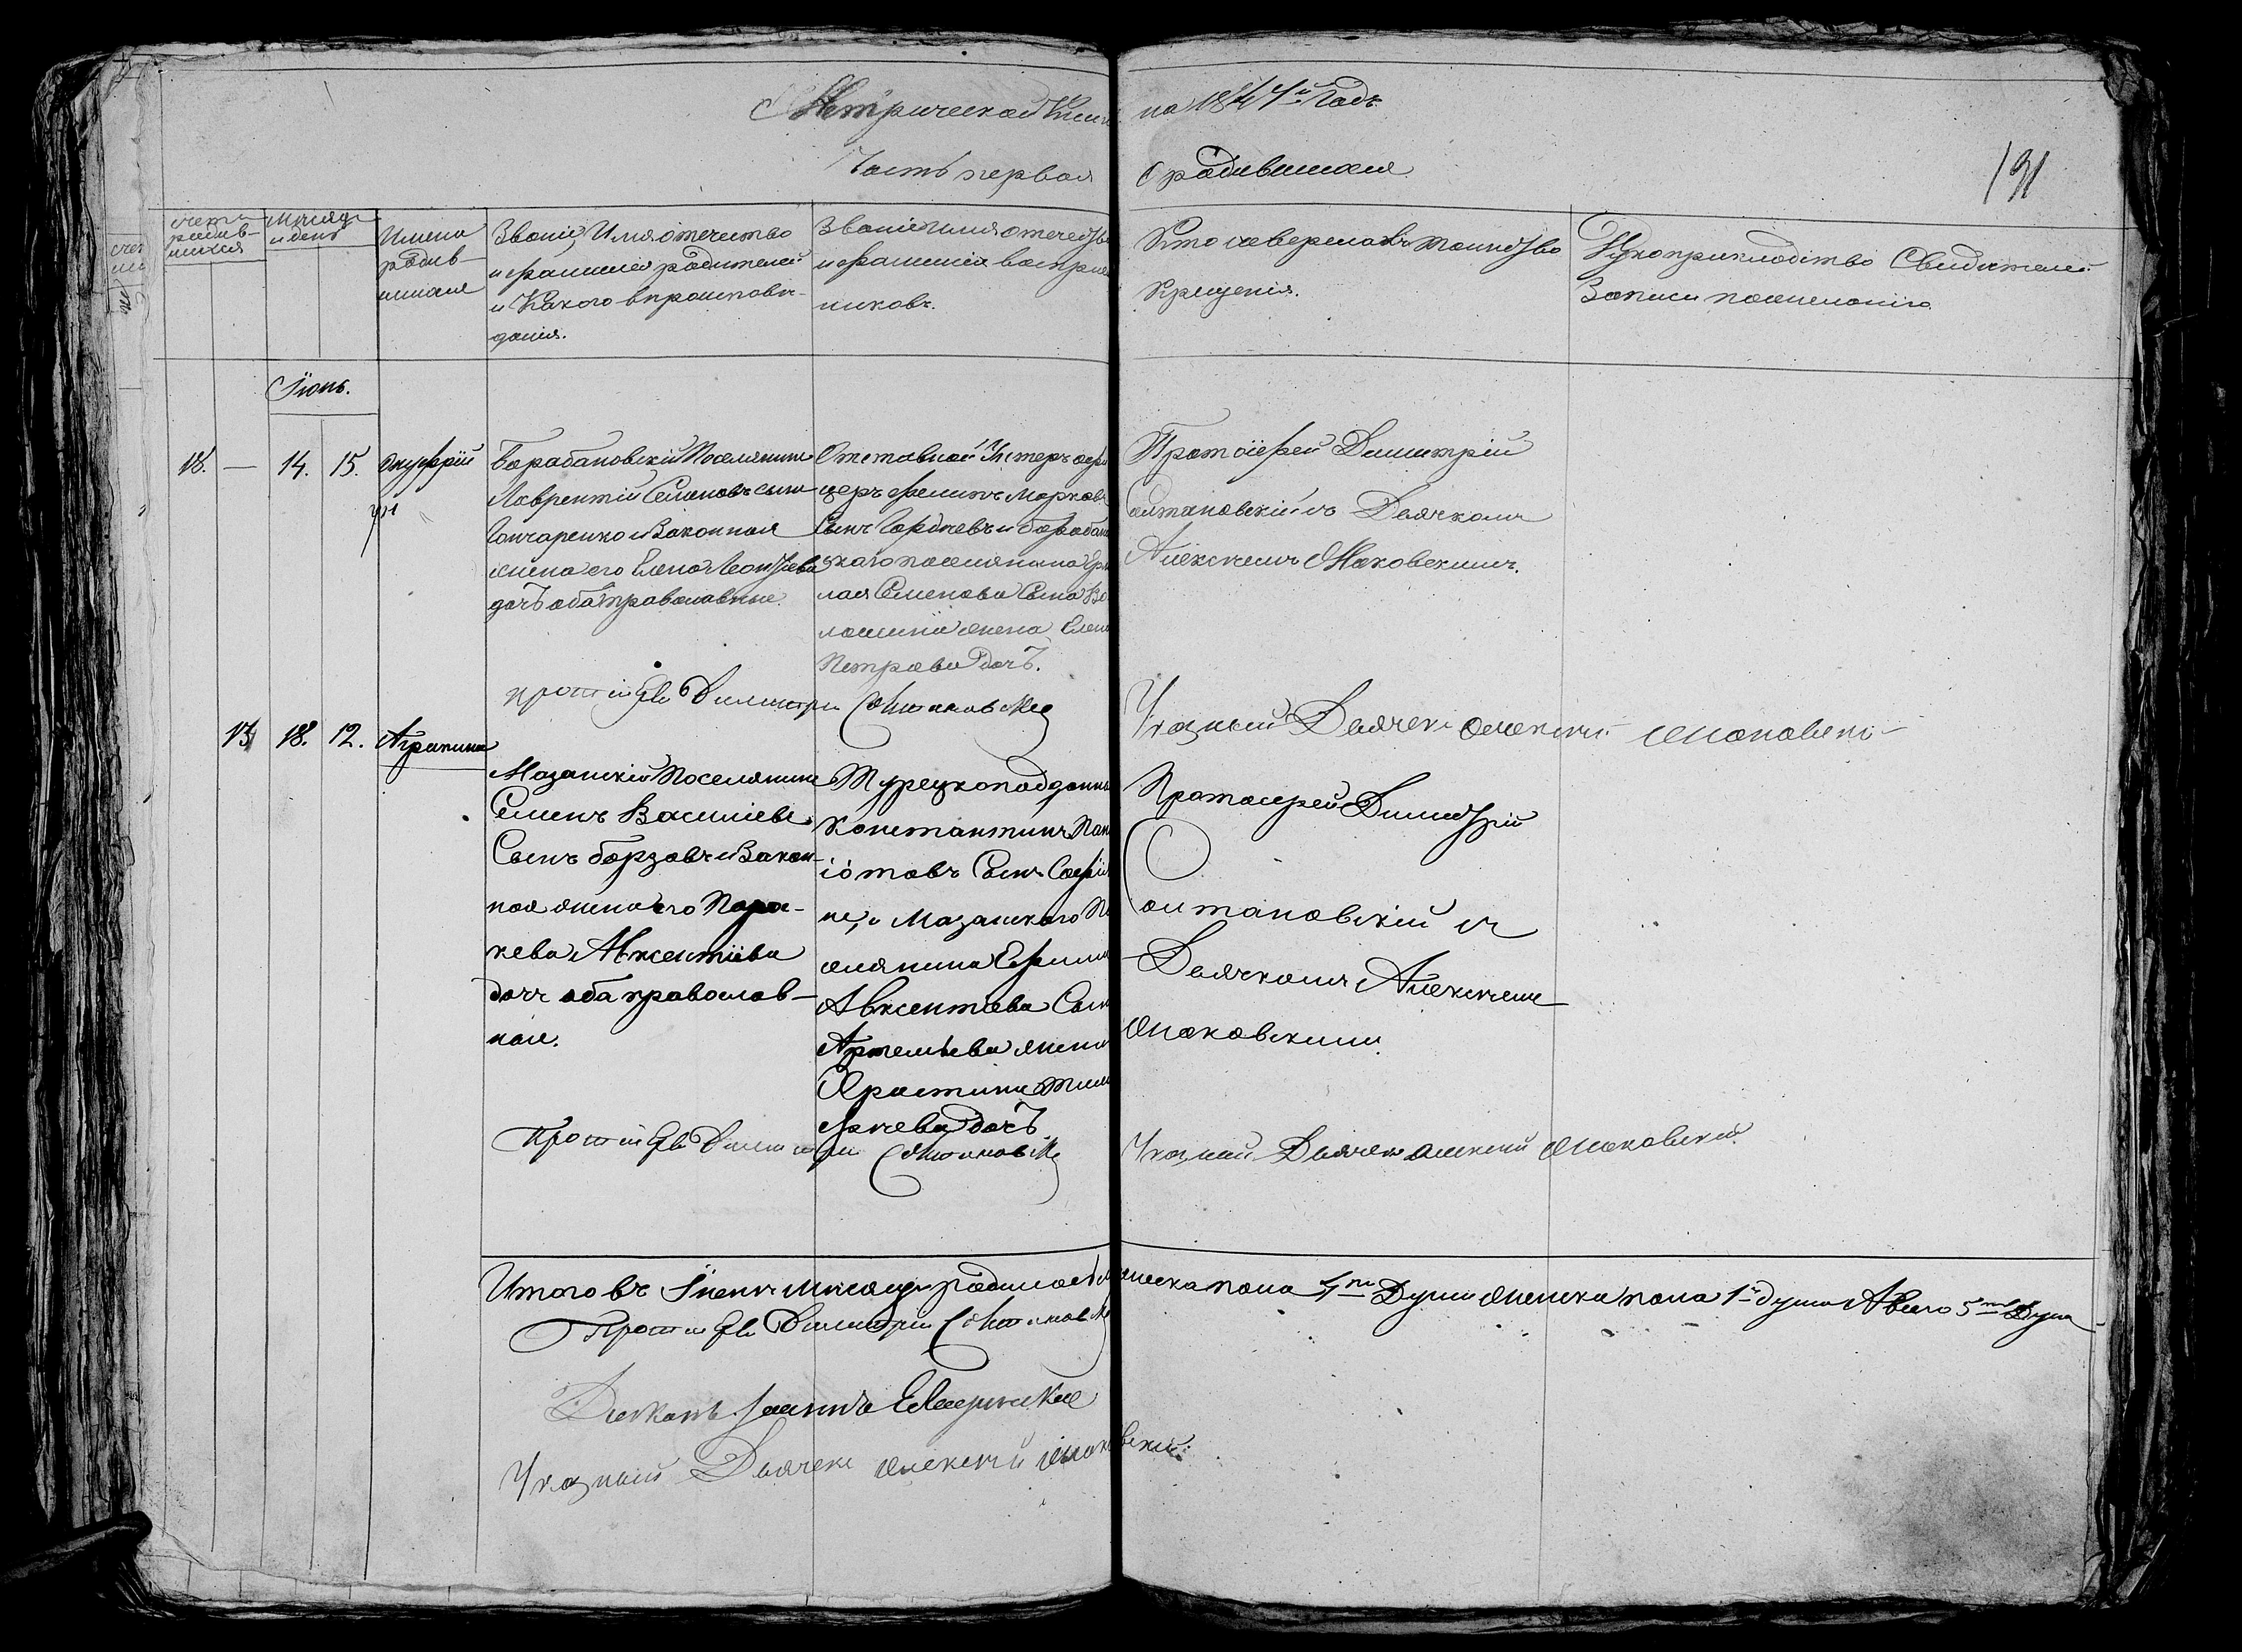 Метрической Книги на 1844й Годъ
Часть первая о родившихся
191
счетъ родив-шихся
Месяцъ и день
Имена родив-шихся
Званіе, Имя отечество
и фамилия родителей
и Какого вероиспове-
данія.
Званіе имя отечество
и фамилия воспріем
никовъ.
Кто совершалъ таинство
Крещенія.
Рукоприкладство Свидетелей
Записи по желанію
Іюнь.
18. — 14. 15. Онуфрій
Барабановскій Поселянинъ
Лаврентій Семеновъ сынъ
Гончаренко и Законная
жена его Елена Леонтьева
дочь оба православные.
Отставной Унтеръ офи
церъ Филипъ Марковъ
Сынъ Гордѣевъ и барабан
скаго поселянина
лая Семенова Сына Во
лошина жена Елена
Петрова дочь.
Протоіерей Димитрій
Солтановскій съ Дьячкомъ
Алексѣемъ Маковскимъ.
протоіерей Димитрій Солтановскій
Указный Дьячекъ Алексѣй Маковскій
13 18. 12. Агрипина
Мазанскій Поселянинъ
Семенъ Василіевъ
Сынъ борзовъ и Закон-
ная жена его Пара-
кева Авксентіева
дочь оба православ-
ные.
Турецкоподданный
Константинъ Пан
іотовъ Сынъ
и Мазанского По
селянина Ефима
Авксентіева Сына
Артемьева жена
Христина Тимо
фѣева дочь
Протоіерей Димитрій
Солтановскій съ
Дьячкомъ Алексѣемъ
Маковскимъ.
Протоіерей Димитрій Солтановскій
Указный Дьячекъ Алексѣй Маковскій
Итого въ Іюнѣ месяцѣ родилось мужеска пола 4ре Души женска пола 1а душа А Всего 5ть Душъ
Протоіерей Димитрій Солтановскій
Диаконъ Іоаннъ
Указный Дьячекъ Алексѣй Маковскій